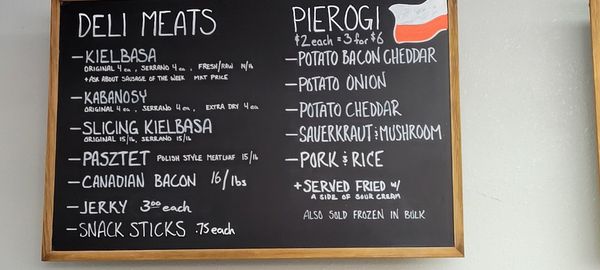 DELI MEATS
– KIELBASA
ORIGINAL 4 ea, SERRANO 4 ea, FRESH/RAW
+ASK ABOUT SAUSAGE OF THE WEEK MKT PRICE
– KABANOSY
ORIGINAL 4 ea, SERRANO 4 ea, EXTRA DRY 4 ea
– SLICING KIELBASA
ORIGINAL 15/lb, SERRANO 15/lb
– PASZTET POLISH STYLE MEATLOAF 15/lb
– CANADIAN BACON 16/lbs
– JERKY 3.00 each
– SNACK STICKS .75 each
PIEROGI
$2 each = 3 for $6
– POTATO BACON CHEDDAR
– POTATO ONION
– POTATO CHEDDAR
– SAUERKRAUT & MUSHROOM
– PORK & RICE
+ SERVED FRIED w/
A SIDE OF SOUR CREAM
ALSO SOLD FROZEN IN BULK